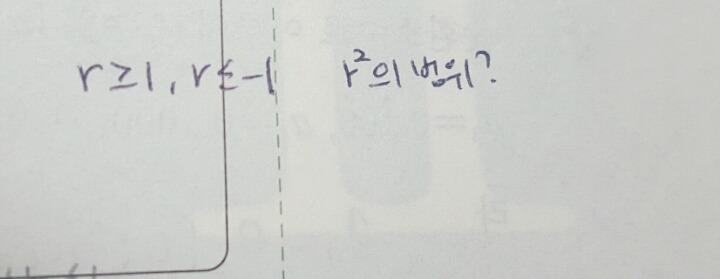 r≥1, r≤-1 r²의 범위?